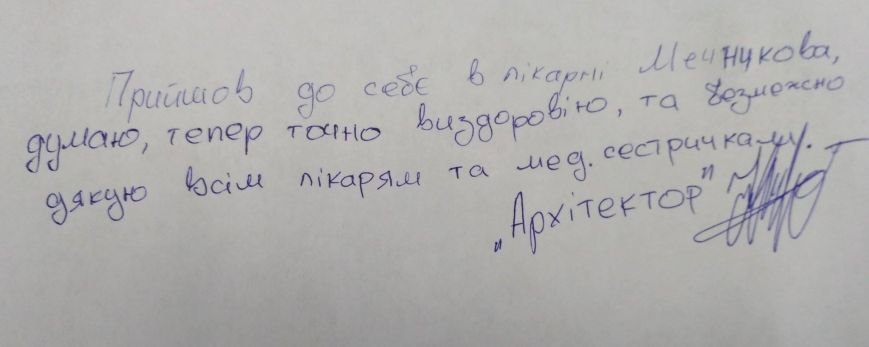 Прийшов до себе в лікарні Мечнукова,
думаю, тепер точно виздоровію, та безмежно
дякую всім лікарям та мед. сестричкаму.
„Архітектор"